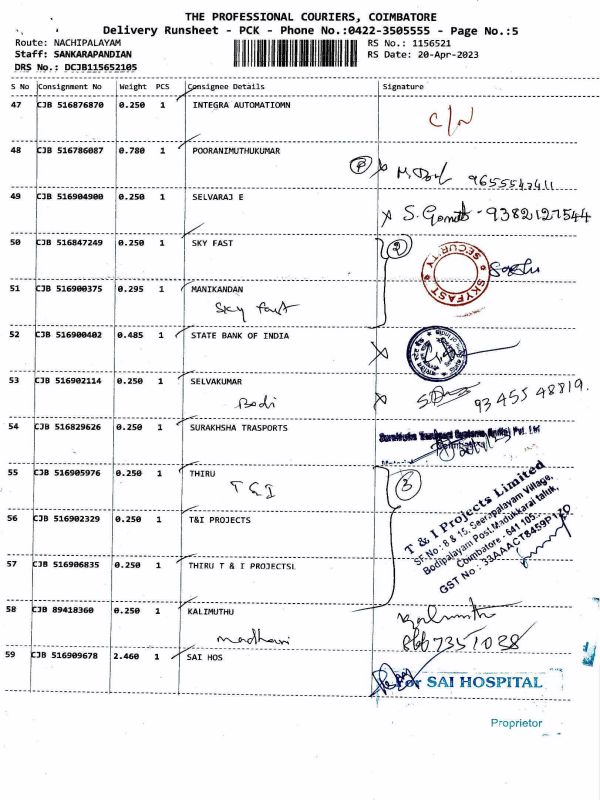 THE PROFESSIONAL COURIERS, COIMBATORE
Delivery Runsheet - PCK - Phone No.:0422-3505555 - Page No.:5
Route: NACHIPALAYAM RS No.: 1156521
Staff: SANKARAPANDIAN RS Date: 20-Apr-2023
DRS No.: DCJB115652105
S No Consignment No Weight PCS Consignee Details Signature
47 CJB 516876870 0.250 1 INTEGRA AUTOMATIOMN
C/N
48 CJB 516786087 0.780 1 POORANIMUTHUKUMAR
49 CJB 516904900 0.250 1 SELVARAJ E
9382127544
50 CJB 516847249 0.250 1 SKY FAST
2
SECURITY
SKYFAST
51 CJB 516900375 0.295 1 MANIKANDAN
Sky fast
52 CJB 516900402 0.485 1 STATE BANK OF INDIA
53 CJB 516902114 0.250 1 SELVAKUMAR
Bodi
93455 48819.
54 CJB 516829626 0.250 1 SURAKHSHA TRASPORTS
55 CJB 516905976 0.250 1 THIRU
T & I
3
T & I Projects Limited
SF.No : 8 & 15, Seerapalayam Village,
Bodipalayam Post, Madukkarai taluk,
Coimbatore - 641 105.
GST No : 33AAACT8459P1ZO
56 CJB 516902329 0.250 1 T&I PROJECTS
57 CJB 516906835 0.250 1 THIRU T & I PROJECTSL
58 CJB 89418360 0.250 1 KALIMUTHU
madhavi
8667351038
59 CJB 516909678 2.460 1 SAI HOS
For SAI HOSPITAL
Proprietor